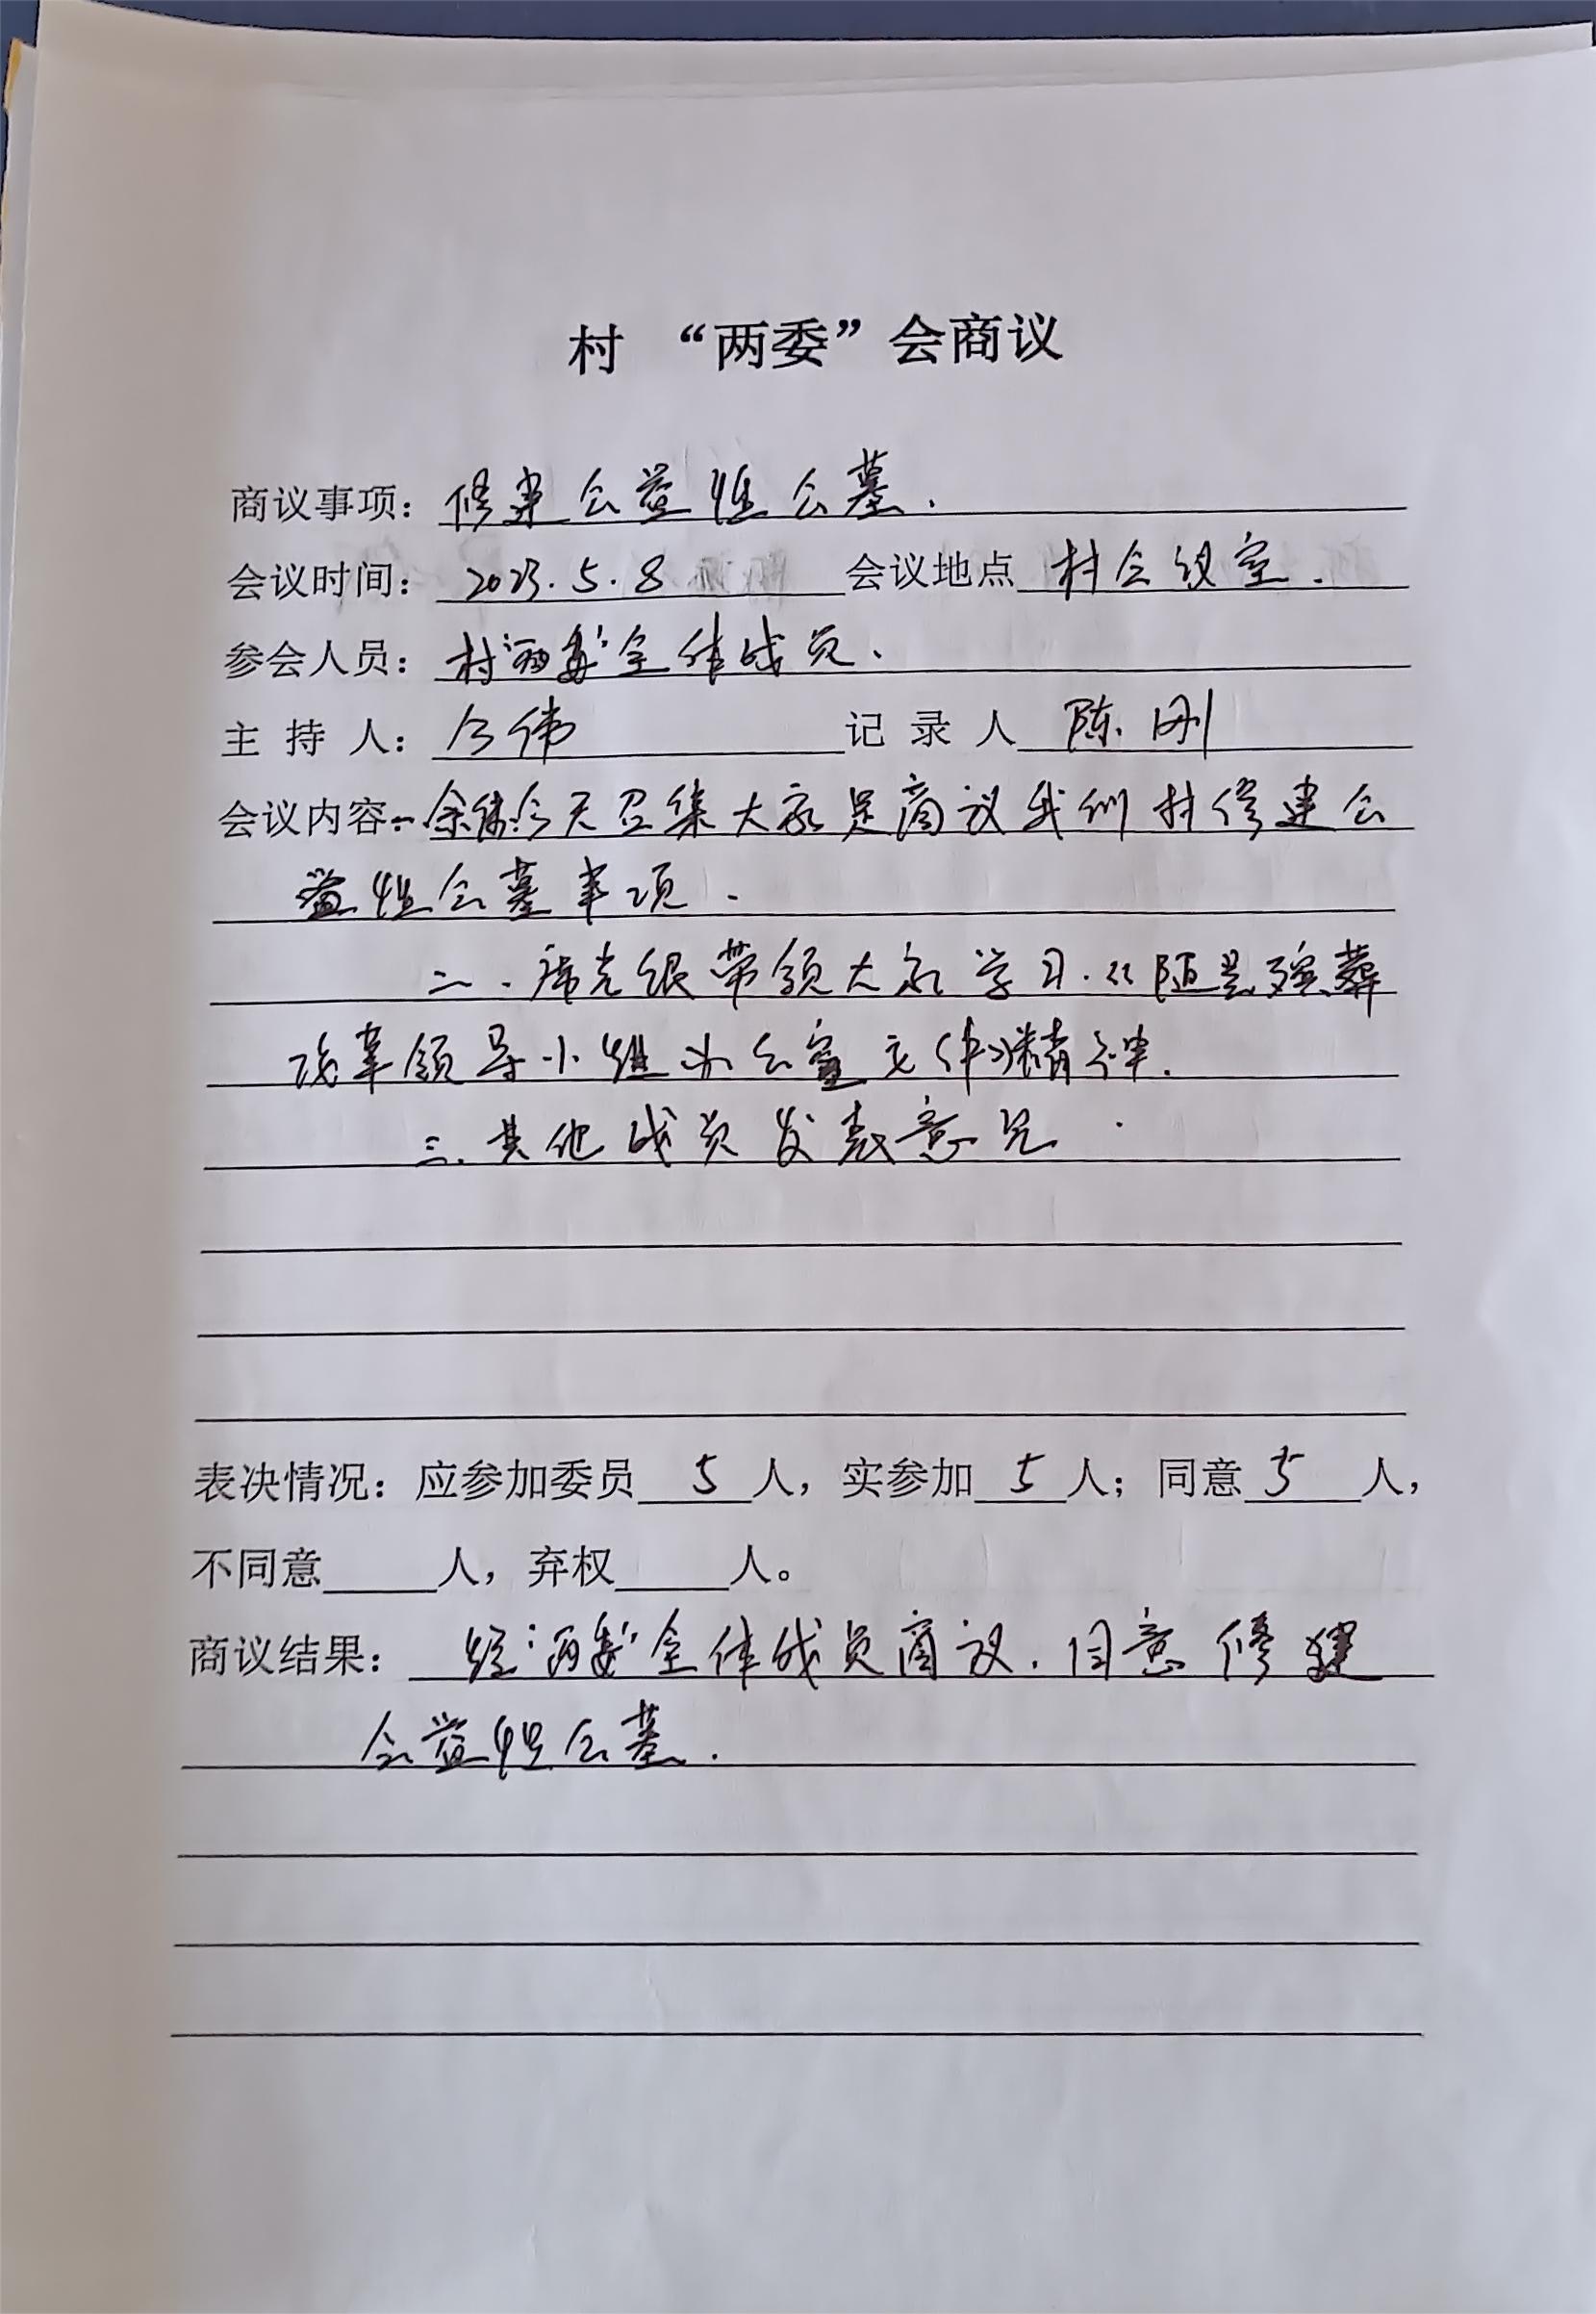 村 “两委”会商议
商议事项：修建公益性公墓.
会议时间：2023.5.8 会议地点 村会议室.
参会人员：村“两委”全体成员.
主 持 人：余伟 记 录 人 陈刚
会议内容：一余伟:今天召集大家是商议我们村修建公
益性公墓事项.
二.席克银带领大家学习.《随县殡葬
改革领导小组办公室文件》精神.
三.其他成员发表意见.
表决情况：应参加委员 5 人，实参加 5 人；同意 5 人，
不同意 人，弃权 人。
商议结果：经“两委”全体成员商议.同意修建
公益性公墓.